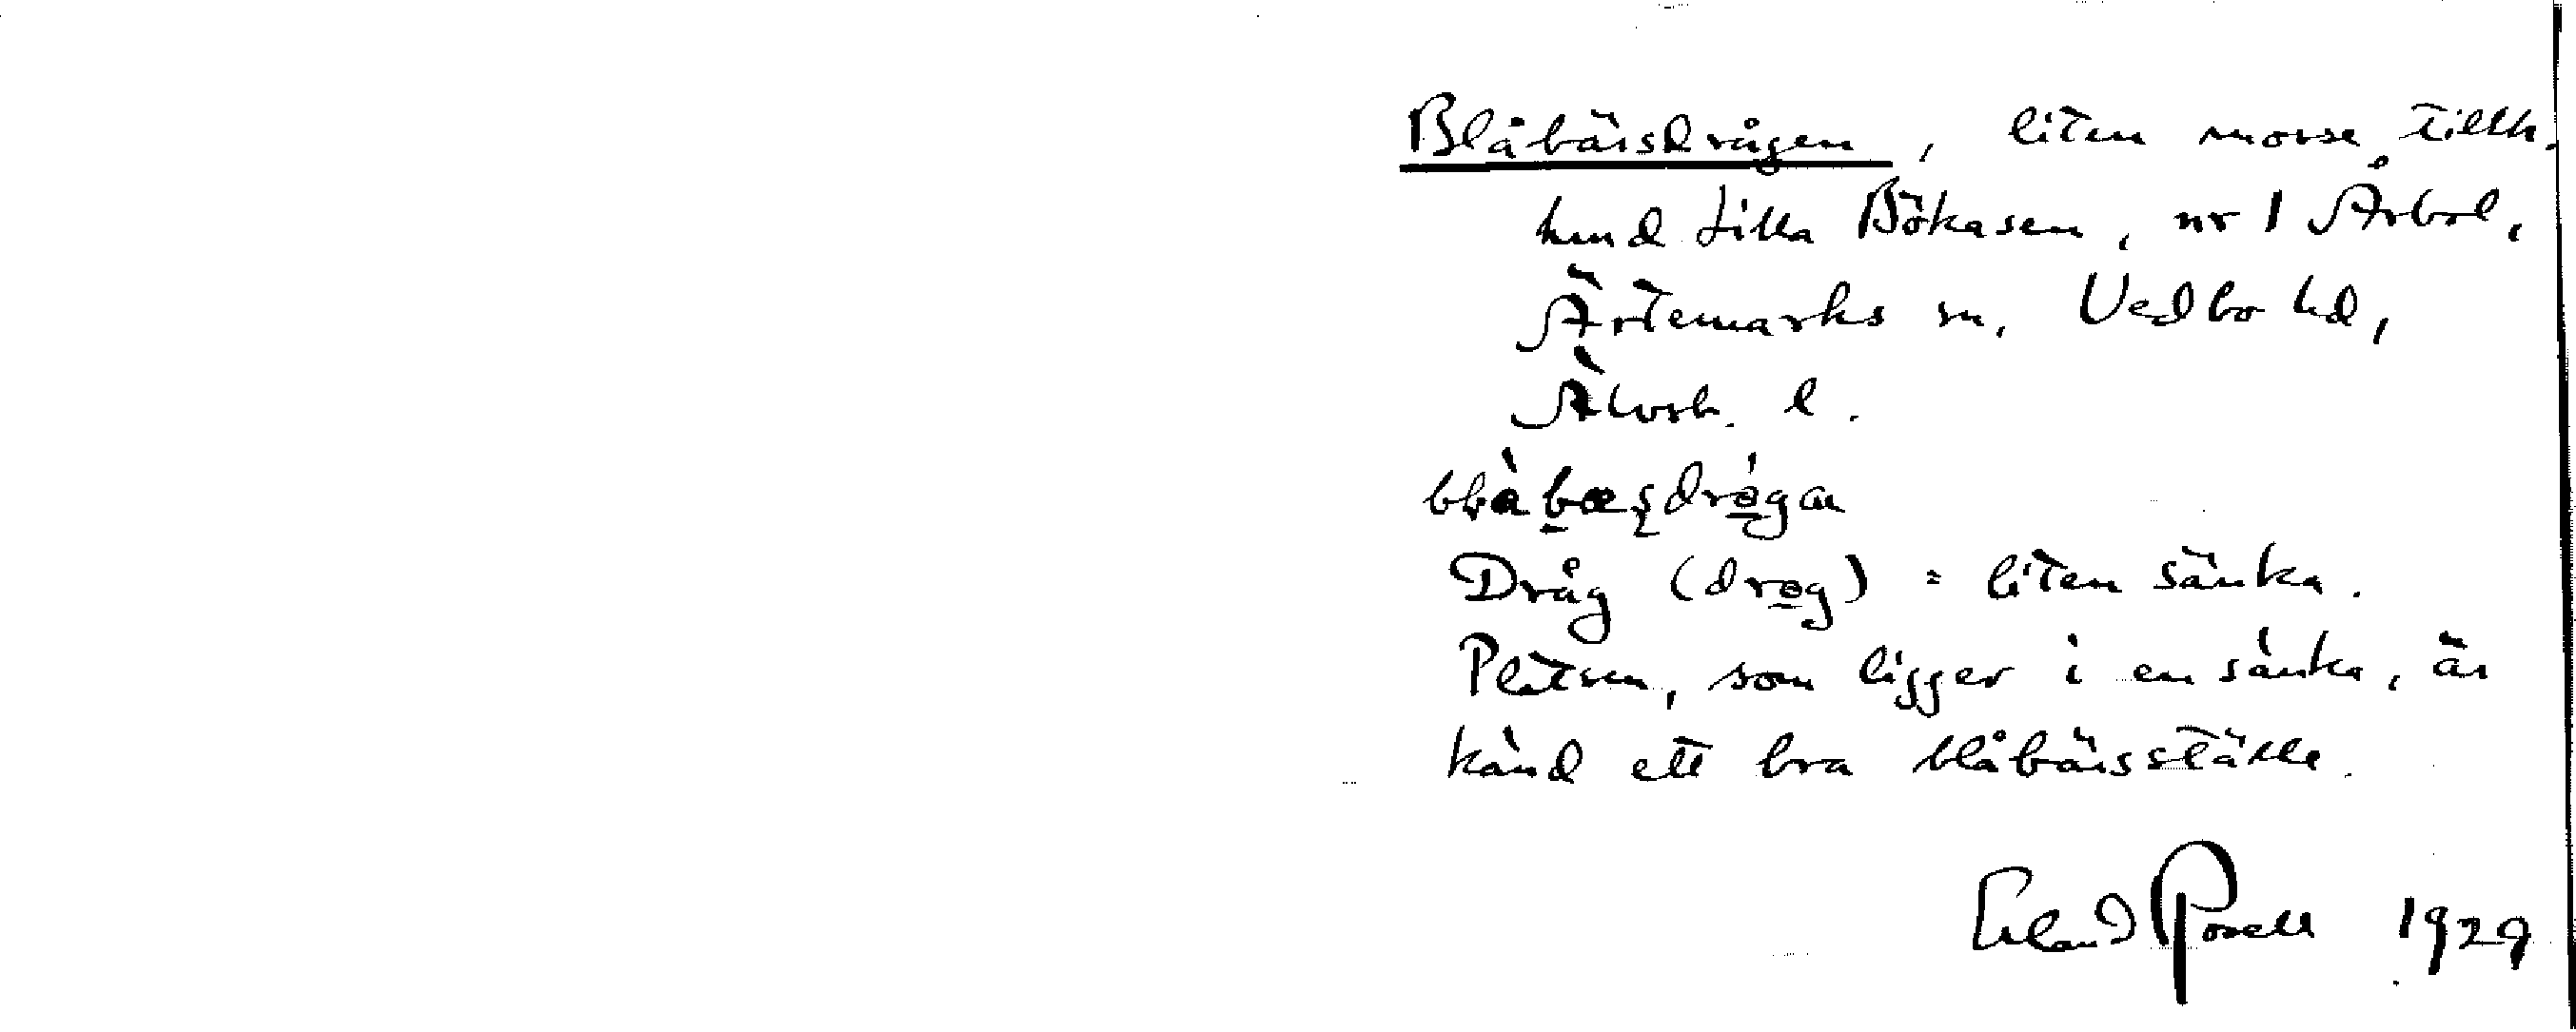 Blåbärsdrågen, liten mosse, tillh.
hmd Lilla Bökåsen, nr 1 Årbol,
Ärtemarks sn, Vedbo hd,
Älvsb. l.
Dråg (drəg) = liten sänka.
Platsen, som ligger i en sänka, är
känd ett bra blåbärsställe.
Erland Rosell 1929